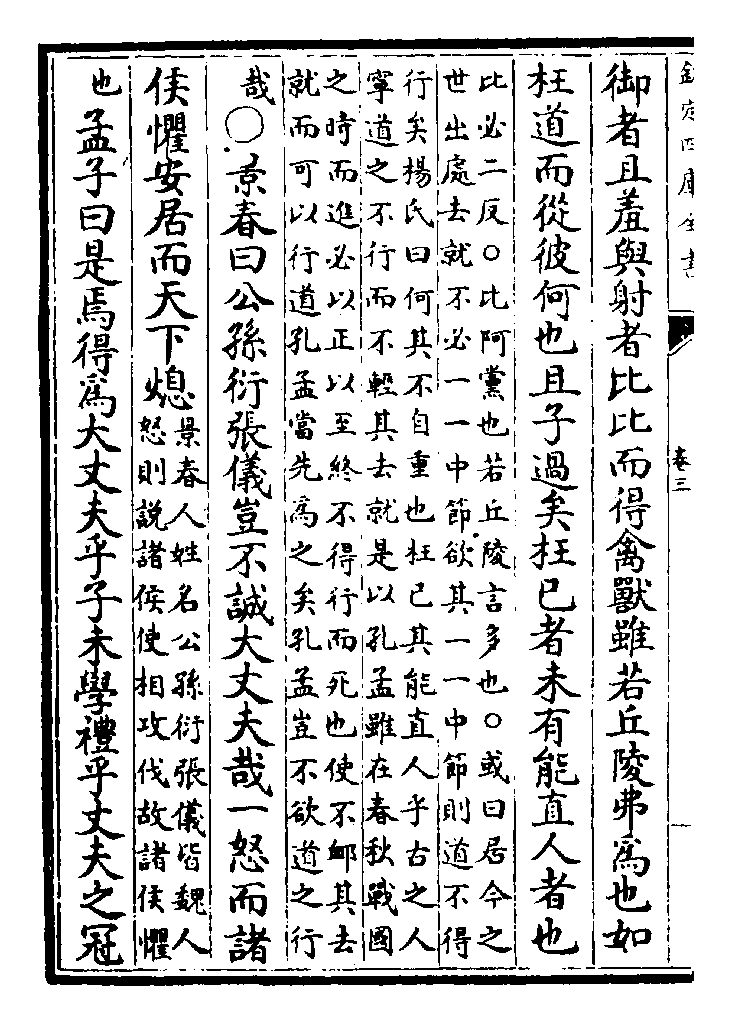 欽定四庫全書
卷三
御者且羞與射者比比而得禽獸雖若丘陵弗爲也如
枉道而從彼何也且子過矣枉已者未有能直人者也
比必二反○比阿黨也若丘陵言多也○或曰居今之
世出處去就不必一一中節欲其一一中節則道不得
行矣楊氏曰何其不自重也枉已其能直人乎古之人
寧道之不行而不輕其去就是以孔孟雖在春秋戰國
之時而進必以正以至終不得行而死也使不卹其去
就而可以行道孔孟當先爲之矣孔孟豈不欲道之行
哉○景春曰公孫衍張儀豈不誠大丈夫哉一怒而諸
侯懼安居而天下熄
景春人姓名公孫衍張儀皆魏人
怒則説諸侯使相攻伐故諸侯懼
也孟子曰是焉得爲大丈夫乎子未學禮乎丈夫之冠